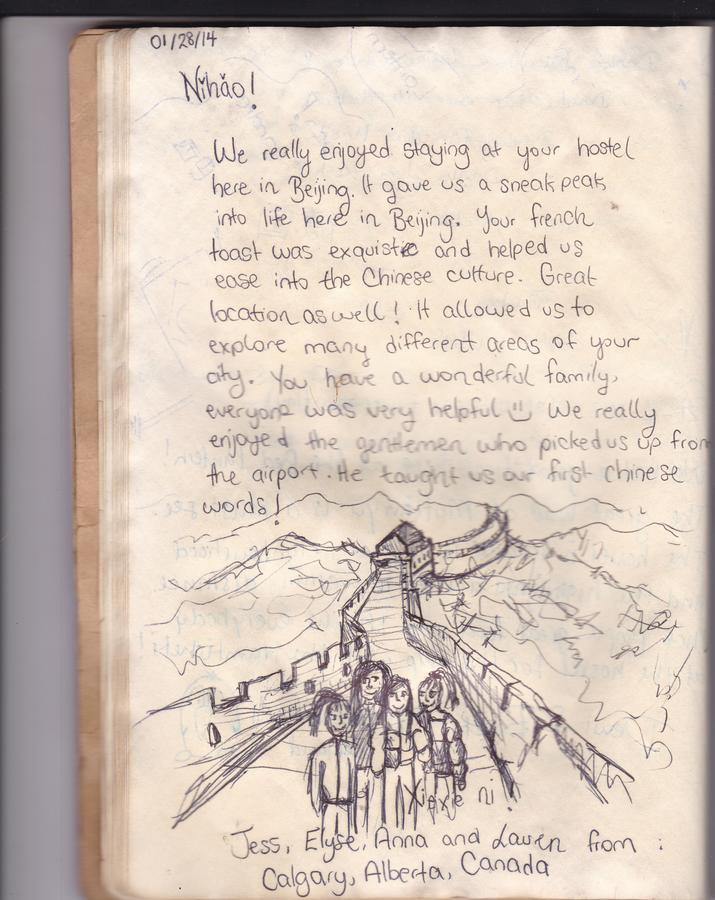 01/28/14
Nǐhǎo!
We really enjoyed staying at your hostel
here in Beijing. It gave us a sneak peak
into life here in Beijing. Your french
toast was exquistie and helped us
ease into the Chinese culture. Great
location as well! It allowed us to
explore many different areas of your
city. You have a wonderful family,
everyone was very helpful We really
enjoyed the gentlemen who picked us up from
the airport. He taught us our first Chinese
words!
Xièxie ni!
Jess, Elyse, Anna and Lauren from :
Calgary, Alberta, Canada